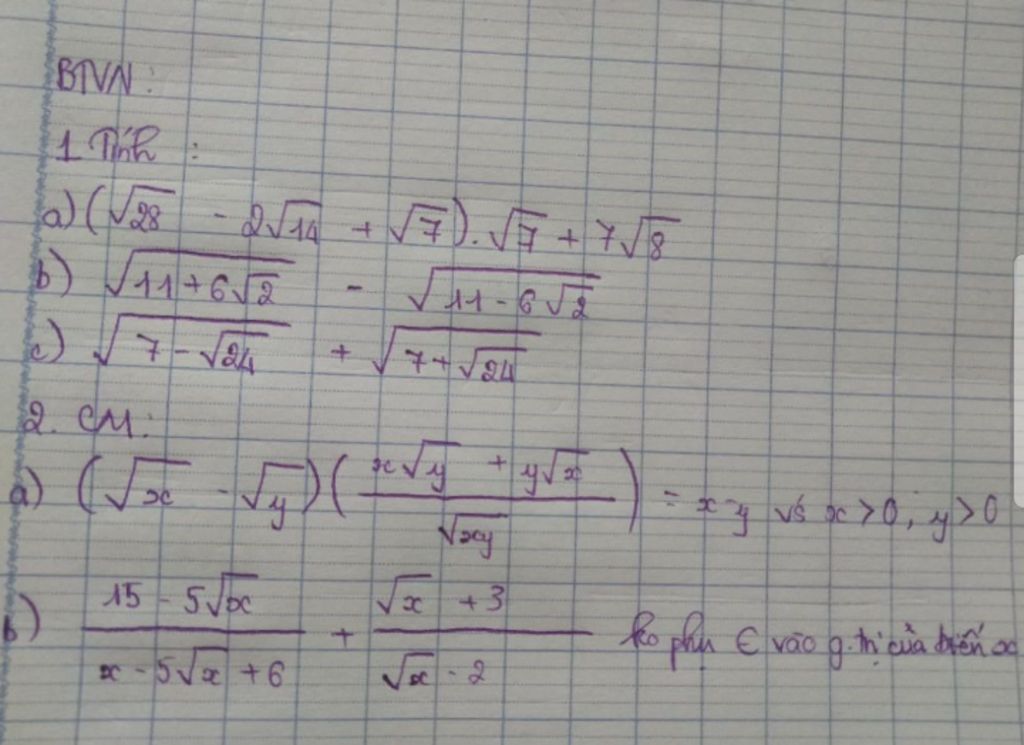 BTVN:
1. Tính :
a) (√28 - 2√14 + √7). √7 + 7√8
b) √(11 + 6√2) - √(11 - 6√2)
c) √(7 - √24) + √(7 + √24)
2. CM:
a) (√x - √y)((x√y + y√x)/√xy) = x-y vs x > 0, y > 0
b) (15 - 5√x)/(x - 5√x + 6) + (√x + 3)/(√x - 2) ko phụ ∈ vào g.trị của biến x